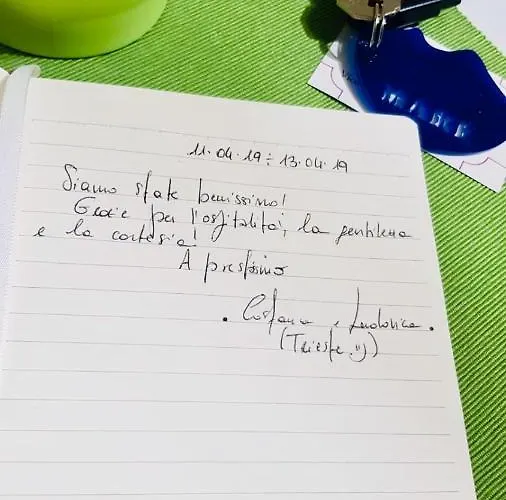 11.04.19 ÷ 13.04.19
Siamo state benissimo!
Grazie per l'ospitalità, la gentilezza
e la cortesia!
A prestissimo
. Costanza e Ludovica.
(Trieste "))
MARE